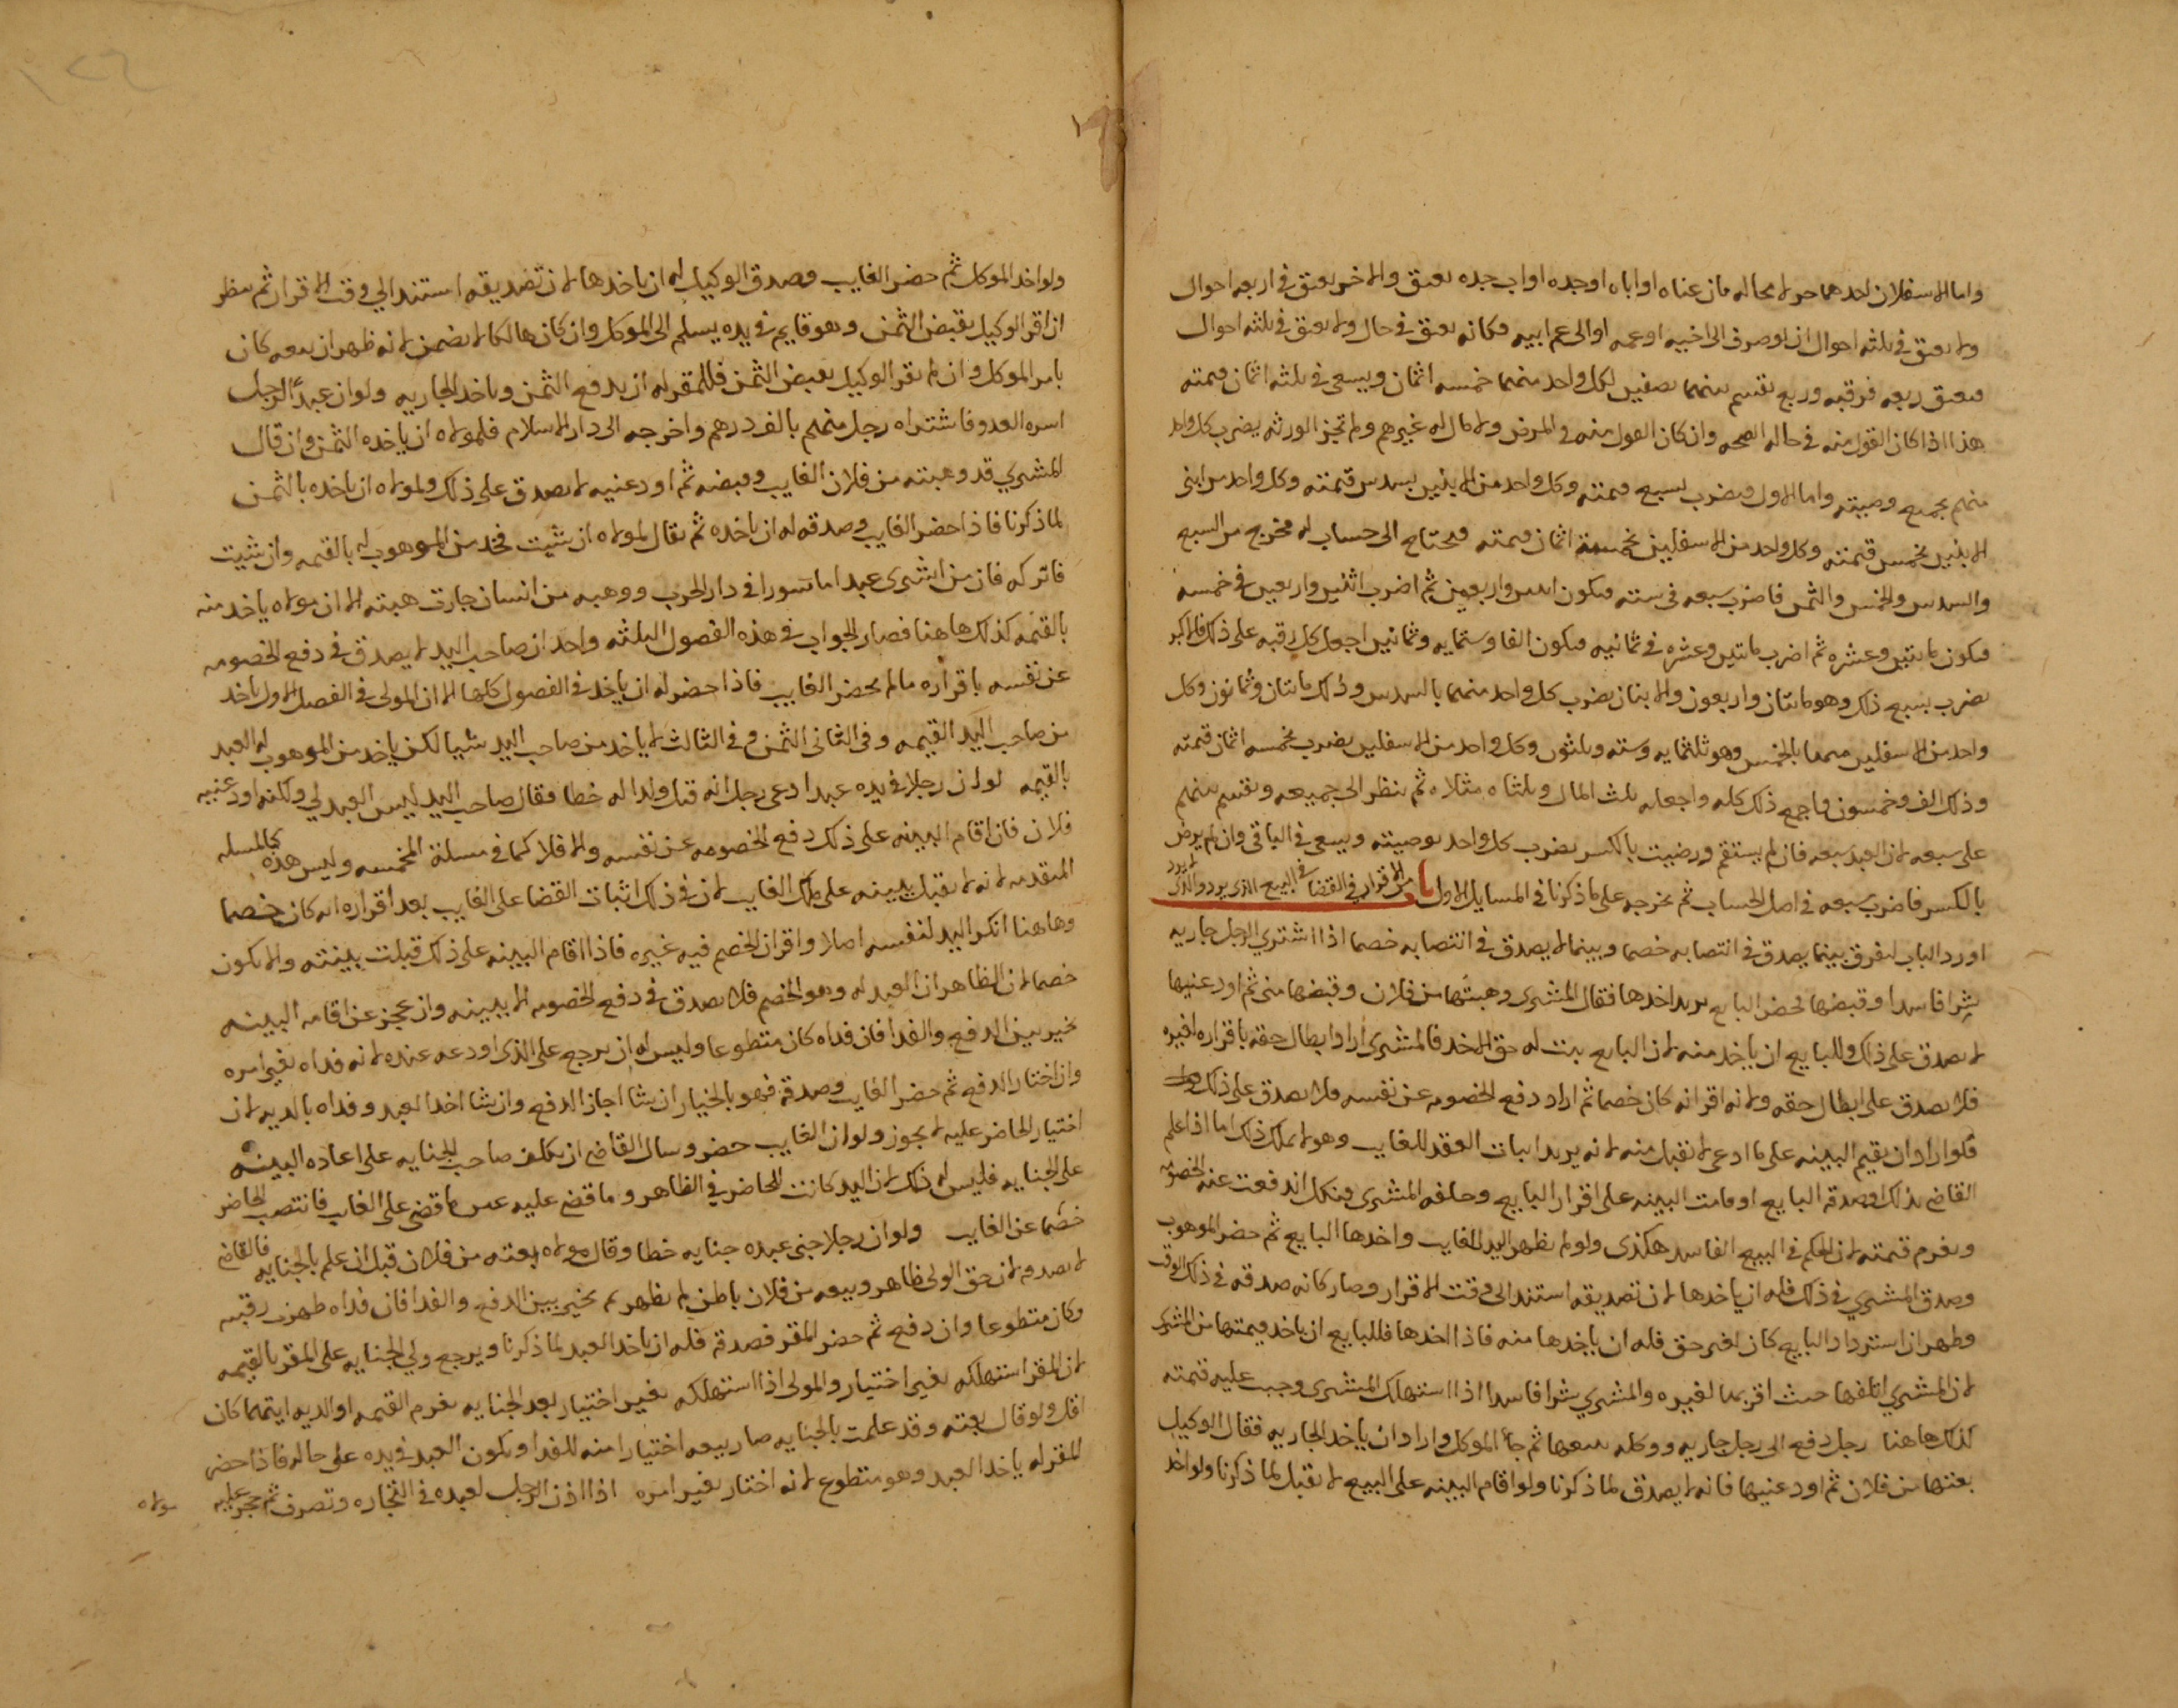 واما الاسفلان احدهما حر لا محاله فان عناه او اباه او جده او اب جده يعتق والاخر يعتق في اربعه احوال
ولا يعتق في ثلثه احوال ان او صرف الى اخيه او عمه او الى عم ابيه فكانه يعتق في حال ولا يعتق في ثلثه احوال
فيعتق ربعه فرقبه وربع تقسم بينهما نصفين لكل واحد منهما خمسه اثمان ويسعى في ثلثه اثمان قيمته
هذا اذا كان القول منه في حاله الصحه وان كان القول منه في المرض ولا مال له غيرهم ولم تجز الورثه يضرب كل واحد
منهم بجميع وصيته واما الاول فيضرب بسبع قيمته وكل واحد من الابنين بسدس قيمته وكل واحد من ابني
الابنين بخمس قيمته وكل واحد من الاسفلين بخمسة اثمان قيمته فيحتاج الى حساب له مخرج من السبع
والسدس والخمس والثمن فاضرب سبعه في سته فيكون اثنين واربعين ثم اضرب اثنين واربعين في خمسه
فيكون مائتين وعشره ثم اضرب مائتين وعشره في ثمانيه فيكون الفا وستمايه وثمانين اجعل كل رقبه على ذلك فالاكبر
يضرب بسبع ذلك وهو مائتان واربعون والابنان يضرب كل واحد منهما بالسدس وذلك مائتان وثمانون وكل
واحد من الاسفلين منهما بالخمس وهو ثلثمايه وسته وثلثون وكل واحد من الاسفلين يضرب بخمسه اثمان قيمته
وذلك الف وخمسون فاجمع ذلك كله واجعله ثلث المال وثلثاه مثلاه ثم ينظر الى جميعه وتقسم بينهم
على سبعه لان العبد سبعه فان لم يستقم ورضيت بالكسر يضرب كل واحد بوصيته ويسعى في الباقي وان لم يرض
بالكسر فاضرب سبعه في اصل الحساب ثم يخرجه على ما ذكرنا في المسايل الاول باب من الاقرار في القضا في البيع الذي يرد والذي لا يرد
اورد الباب لفرق بينما يصدق في انتصابه خصما وبينما لا يصدق في انتصابه خصما اذا اشترى الرجل جاريه
شرا فاسدا وقبضها فحضر البايع يريد اخذها فقال المشتري وهبتها من فلان وقبضها مني ثم اودعنيها
لا يصدق على ذلك وللبايع ان ياخذ منه لان البايع يثبت له حق الاخذ فالمشتري اراد ابطال حقه باقراره لغيره
فلا يصدق على ابطال حقه ولانه اقر انه كان خصما ثم اراد دفع الخصومه عن نفسه فلا يصدق على ذلك
فلو اراد ان يقيم البينه على ما ادعى لا تقبل منه لانه يريد اثبات العقد للغايب وهو لا يملك ذلك اما اذا علم
القاضي بذلك او صدقه البايع او قامت البينه على اقرار البايع وحلفه المشتري فنكل اندفعت عنه الخصومه
ويغرم قيمته لان الحكم في البيع الفاسد هكذى ولو لم يظهر اليد للغايب واخذها البايع ثم حضر الموهوب
وصدق المشتري في ذلك فله ان ياخذها لان تصديقه استند الى وقت الاقرار وصار كانه صدقه في ذلك الوقت
وظهر ان استرداد البايع كان لغير حق فله ان ياخذها منه فاذا اخذها فللبايع ان ياخذ قيمتها من المشتري
لان المشتري اتلفها حيث اقر بها لغيره والمشتري شرا فاسدا اذا استهلك المشترى وجب عليه قيمته
كذلك هاهنا رجل دفع الى رجل جاريه ووكله ببيعها ثم جا الموكل واراد ان ياخذ الجاريه فقال الوكيل
بعتها من فلان ثم اودعنيها فانه لا يصدق لما ذكرنا ولو اقام البينه على البيع لا تقبل لما ذكرنا ولو اخذ
ولو اخذ الموكل ثم حضر الغايب وصدق الوكيل له ان ياخذها لان تصديقه استند الى وقت الاقرار ثم ينظر
ان اقر الوكيل بقبض الثمن وهو قايم في يده يسلم الى الموكل وان كان هالكا لا يضمن لانه ظهر ان بيعه كان
بامر الموكل وان لم يقر الوكيل بقبض الثمن فللمقر له ان يدفع الثمن وياخذ الجاريه ولو ان عبد الرجل
اسره العدو فاشتراه رجل منهم بالف درهم واخرجه الى دار الاسلام فلمولاه ان ياخذه الثمن وان قال
المشتري قد وهبته من فلان الغايب وقبضه ثم اودعنيه لا يصدق على ذلك ولمولاه ان ياخذه بالثمن
لما ذكرنا فاذا حضر الغايب وصدقه له ان ياخذه ثم يقال لمولاه ان شيت فخذ من الموهوب له بالقيمه وان شيت
فاتركه فان من اشترى عبدا ماسورا في دار الحرب ووهبه من انسان جازت هبته الا ان مولاه ياخذ منه
بالقيمه كذلك هاهنا فصار الجواب في هذه الفصول الثلثه واحد ان صاحب اليد لا يصدق في دفع الخصومه
عن نفسه باقراره ما لم يحضر الغايب فاذا حضر له ان ياخذ في الفصول كلها الا ان المولى في الفصل الاول ياخذ
من صاحب اليد القيمه وفي الثاني الثمن وفي الثالث لا ياخذ من صاحب اليد شيا لكن ياخذ من الموهوب له العبد
بالقيمه لو ان رجلا في يده عبدا ادعى رجل انه قتل ولدا له خطا فقال صاحب اليد ليس العبد لي ولكنه اودعنيه
فلان فان اقام البينه على ذلك دفع الخصومه عن نفسه والا فلا كما في مسلة المخمسه وليس هذه كالمسله
المتقدمه لانه لا تقبل بينه على ملك الغايب لان في ذلك اثبات القضا على الغايب بعد اقراره انه كان خصما
وهاهنا انكر اليد لنفسه اصلا واقر ان الخصم فيه غيره فاذا اقام البينه على ذلك قبلت بينته والا يكون
خصما لان الظاهر ان العبد له وهو الخصم فلا يصدق في دفع الخصومه الا ببينه وان عجز عن اقامه البينه
يخير بين الدفع والفدا فان فداه كان متطوعا وليس له ان يرجع على الذي اودعه عنده لانه فداه بغير امره
وان اختار الدفع ثم حضر الغايب وصدقه فهو بالخيار ان شا اجاز الدفع وان شا اخذ العبد وفداه بالديه لان
اختيار الحاضر عليه لا يجوز ولو ان الغايب حضر وسال القاضي ان يكلف صاحب الجنايه على اعاده البينه
على الجنايه فليس له ذلك لان اليد كانت للحاضر في الظاهر وما قضي عليه عين ما قضى على الغايب فانتصب الحاضر
خصما عن الغايب ولو ان رجلا جنى عبده جنايه خطا وقال مولاه بعته من فلان قبل ان علم بالجنايه فالقاضي
لا يصدقه لان حق الولي ظاهر وبيعه من فلان باطن لم يظهر ثم يخير بين الدفع والفدا فان فداه طهرت رقبته
وكان متطوعا وان دفع ثم حضر المقر فصدقه فله ان ياخذ العبد لما ذكرنا ويرجع ولي الجنايه على المقر بالقيمه
لان المقر استهلكه بغير اختيار والمولى اذا استهلكه بغير اختيار بعد الجنايه يغرم القيمه او الديه ايتهما كان
اقل ولو قال بعته وقد علمت بالجنايه صار بيعه اختيارا منه للفدا ويكون العبد في يده على حاله فاذا حضر
المقر له ياخذ العبد وهو متطوع لانه اختار بغير امره اذا اذن الرجل لعبده في التجاره وتصرف ثم حجر عليه
مولاه